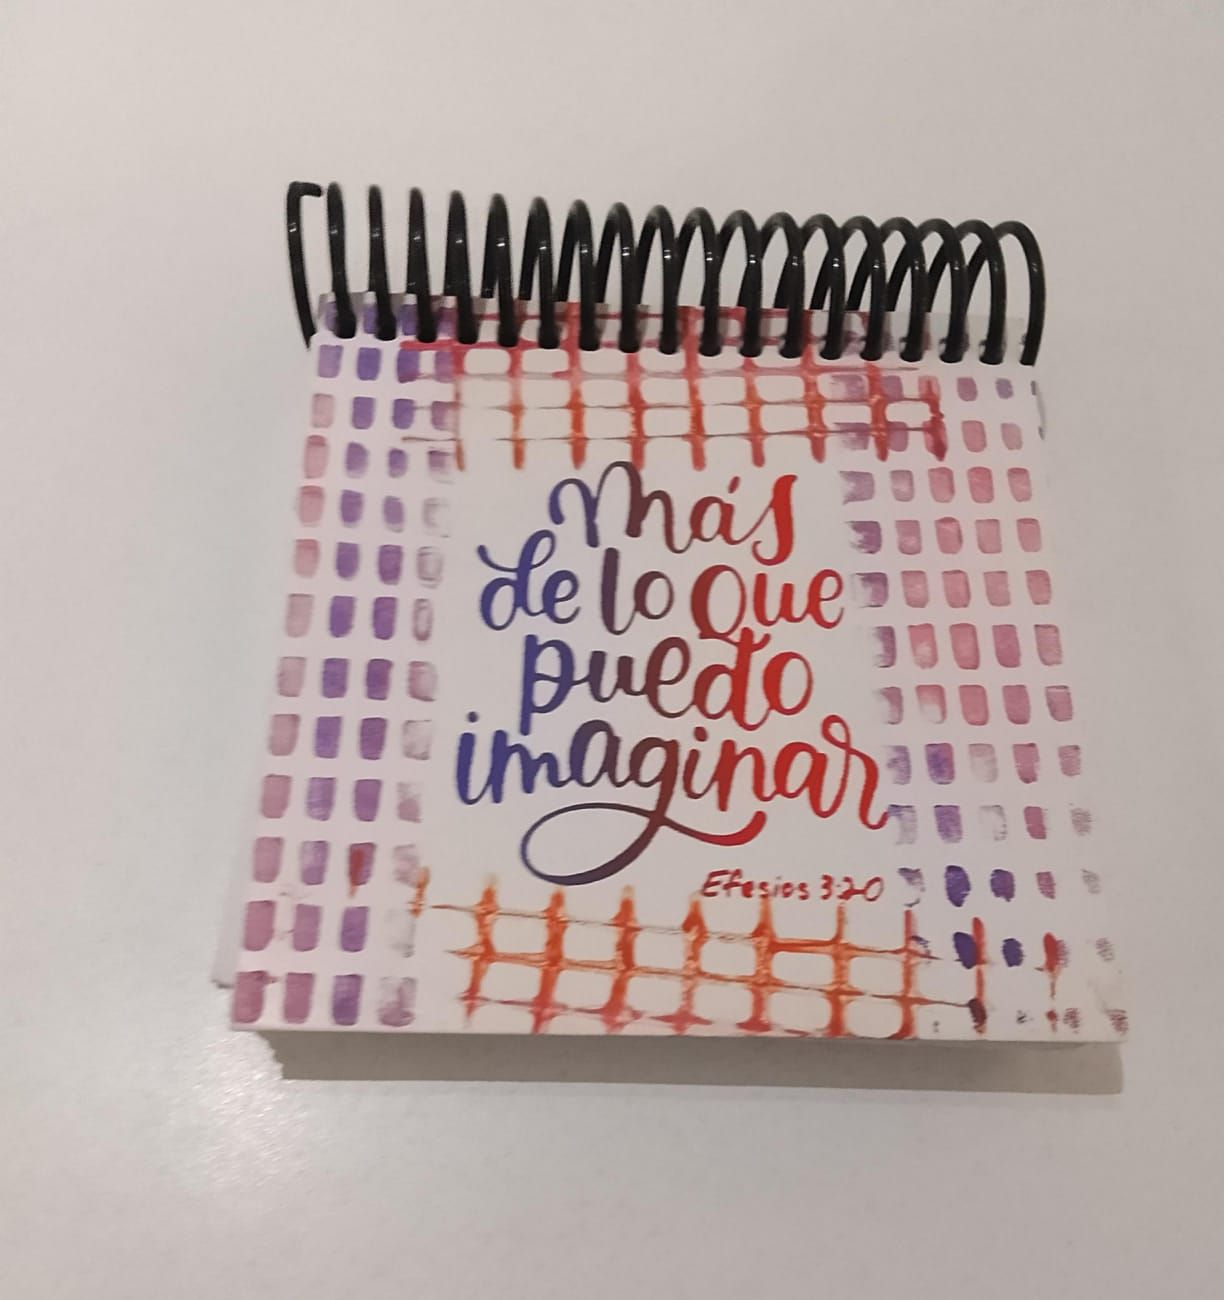 más
de lo que
puedo
imaginar
Efesios 3:20